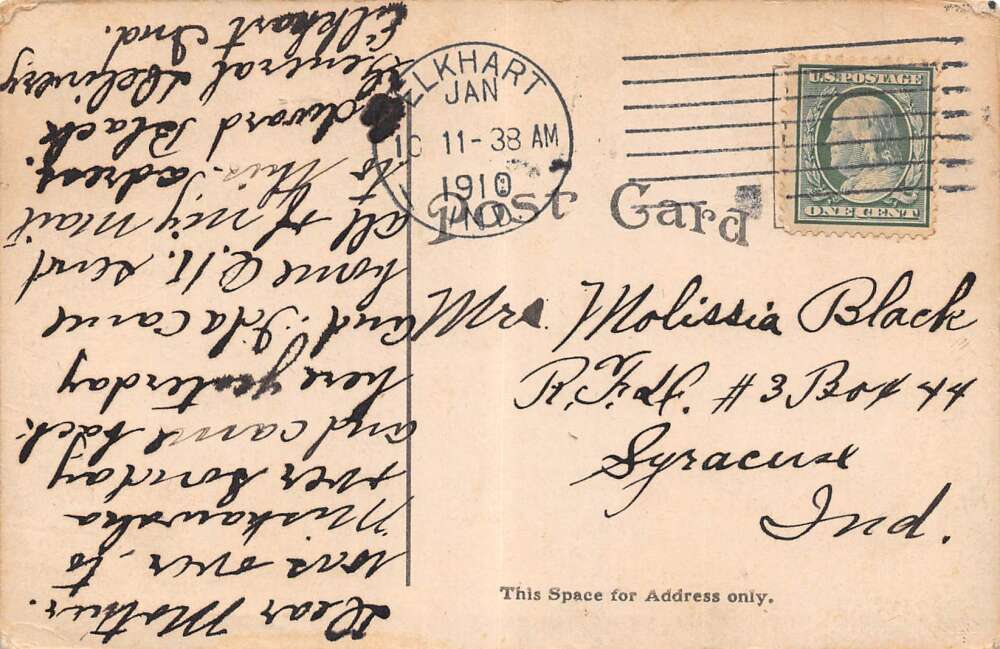 Dear Mother.
was over to
Mishawaka
over Sonday
and came back
here yesterday
and Ida came
home O.K. send
all of my mail
to this adress.
Edward Black
General Delivery
Elkhart Ind.
ELKHART
JAN
10 11-38 AM
1910
IND.
U.S. POSTAGE
ONE CENT
Post Card
Mrs. Molissia Black
R.F.D. #3 Box 44
Syracuse
Ind.
This Space for Address only.